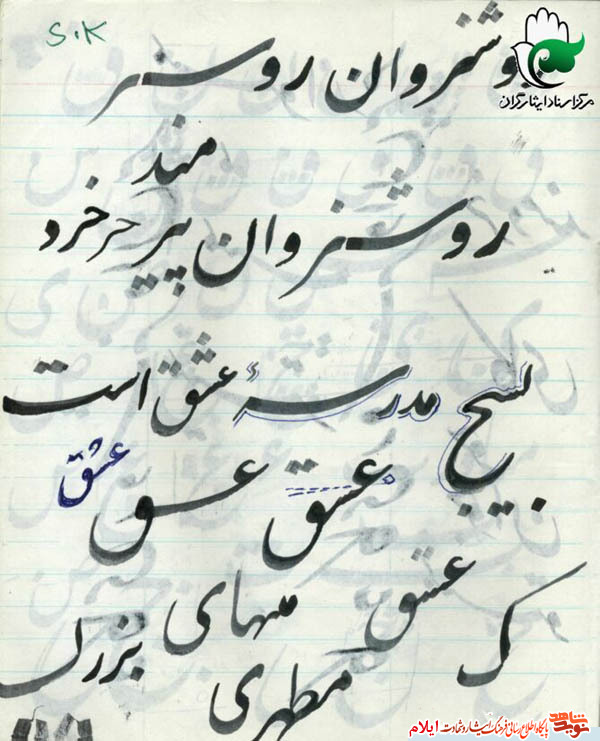 S.K
مرکز اسناد ایثارگران
روشنروان روسنر
مند
روشنروان پیر خر خرد
بسیج مدرسهٔ عشق است
عشق عسق عشق
ک عسق منهای
مطهری بزرگ
نوید شاهد پایگاه اطلاع رسانی فرهنگ ایثار و شهادت ایلام